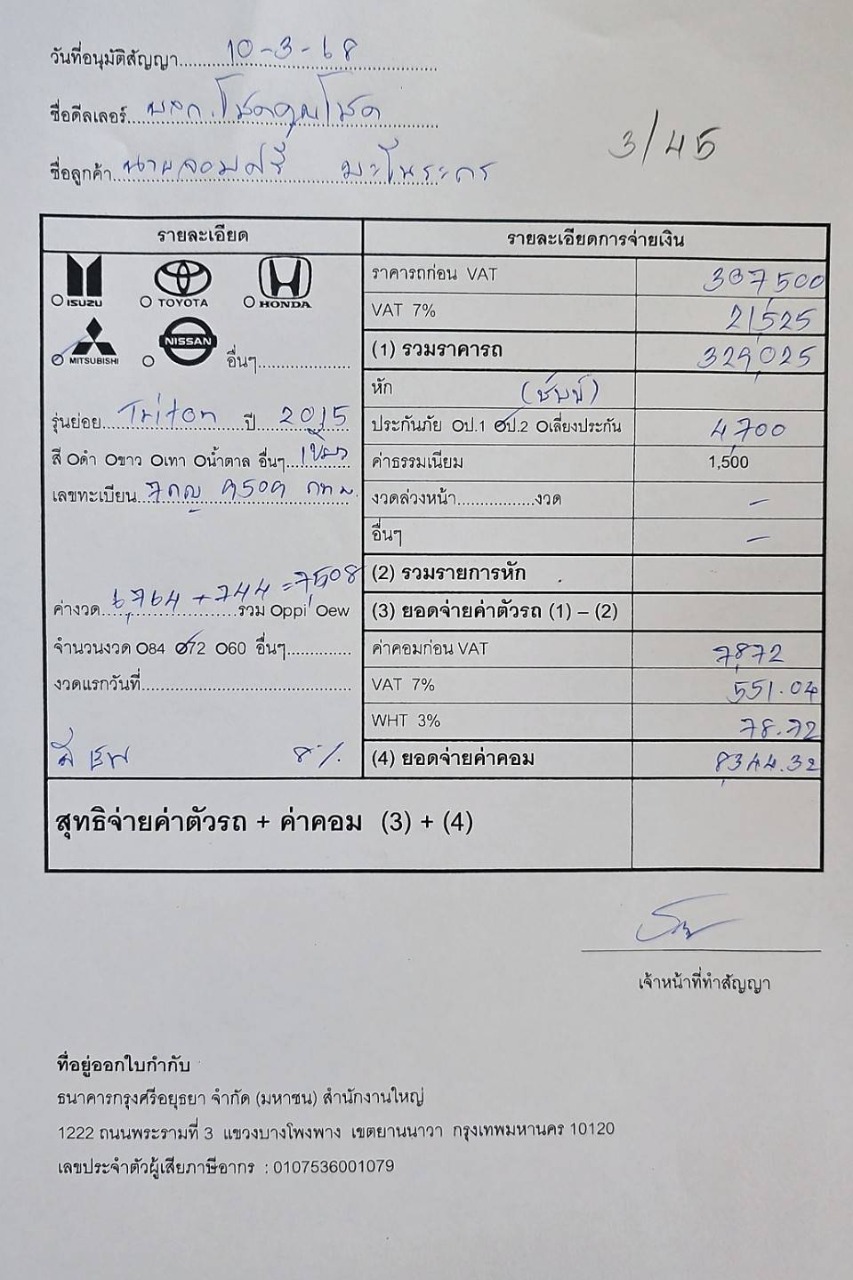 วันที่อนุมัติสัญญา 10-3-68
ชื่อดีลเลอร์ บจก. โชคคูณโชค
3/45
ชื่อลูกค้า นายจอมศรี มะโนระกร
รายละเอียด
รายละเอียดการจ่ายเงิน
ISUZU TOYOTA HONDA
MITSUBISHI NISSAN อื่นๆ
รุ่นย่อย Triton ปี 2015
สี Oดำ Oขาว Oเทา Oน้ำตาล อื่นๆ
เลขทะเบียน 7กญ 9509 กทม
ค่างวด 6,764 + 744 = 7,508 รวม Oppi Oew
จำนวนงวด O84 O72 O60 อื่นๆ
งวดแรกวันที่
8%
ราคารถก่อน VAT 307,500
VAT 7% 21,525
(1) รวมราคารถ 329,025
หัก
ประกันภัย Oป.1 Oป.2 Oเลี่ยงประกัน 4,700
ค่าธรรมเนียม 1,500
งวดล่วงหน้า งวด –
อื่นๆ –
(2) รวมรายการหัก
(3) ยอดจ่ายค่าตัวรถ (1) – (2)
ค่าคอมก่อน VAT 7,872
VAT 7% 551.04
WHT 3% 78.72
(4) ยอดจ่ายค่าคอม 8,344.32
สุทธิจ่ายค่าตัวรถ + ค่าคอม (3) + (4)
เจ้าหน้าที่ทำสัญญา
ที่อยู่ออกใบกำกับ
ธนาคารกรุงศรีอยุธยา จำกัด (มหาชน) สำนักงานใหญ่
1222 ถนนพระรามที่ 3 แขวงบางโพงพาง เขตยานนาวา กรุงเทพมหานคร 10120
เลขประจำตัวผู้เสียภาษีอากร : 0107536001079